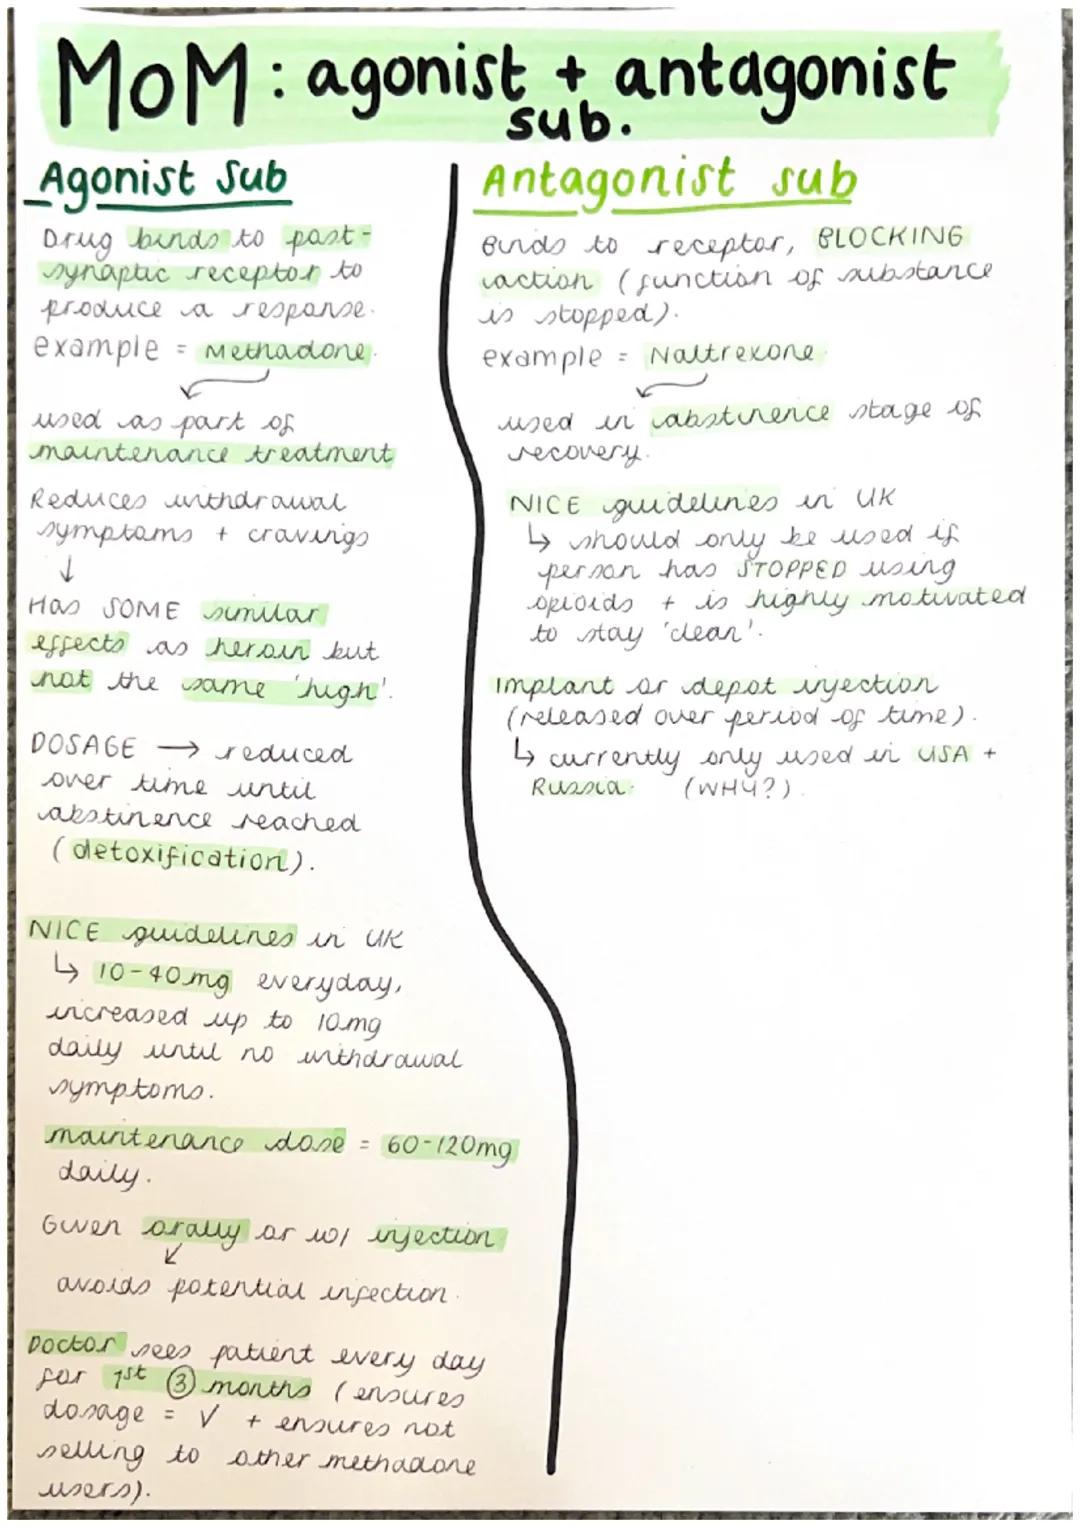 MoM: agonist + antagonist
sub.
Agonist Sub
Drug binds to post-
synaptic receptor to
produce a response.
example = Methadone.
used as part of
maintenance treatment
Reduces withdrawal
symptoms + cravings
↓
Has SOME similar
effects as heroin but
not the same 'high'.
DOSAGE → reduced
over time until
abstinence reached
(detoxification).
NICE guidelines in UK
↳ 10-40mg everyday,
increased up to 10mg
daily until no withdrawal
symptoms.
maintenance dose = 60-120mg
daily.
Given orally or w/ injection
↙
avoids potential infection.
Doctor sees patient every day
for 1st ③ months (ensures
dosage = ✓ + ensures not
selling to other methadone
users).
Antagonist sub
Binds to receptor, BLOCKING
action (function of substance
is stopped).
example = Naltrexone
used in abstinence stage of
recovery.
NICE guidelines in UK
↳ should only be used if
person has STOPPED using
opioids + is highly motivated
to stay 'clean'.
Implant or depot injection
(released over period of time).
↳ currently only used in USA +
Russia. (WHY?)